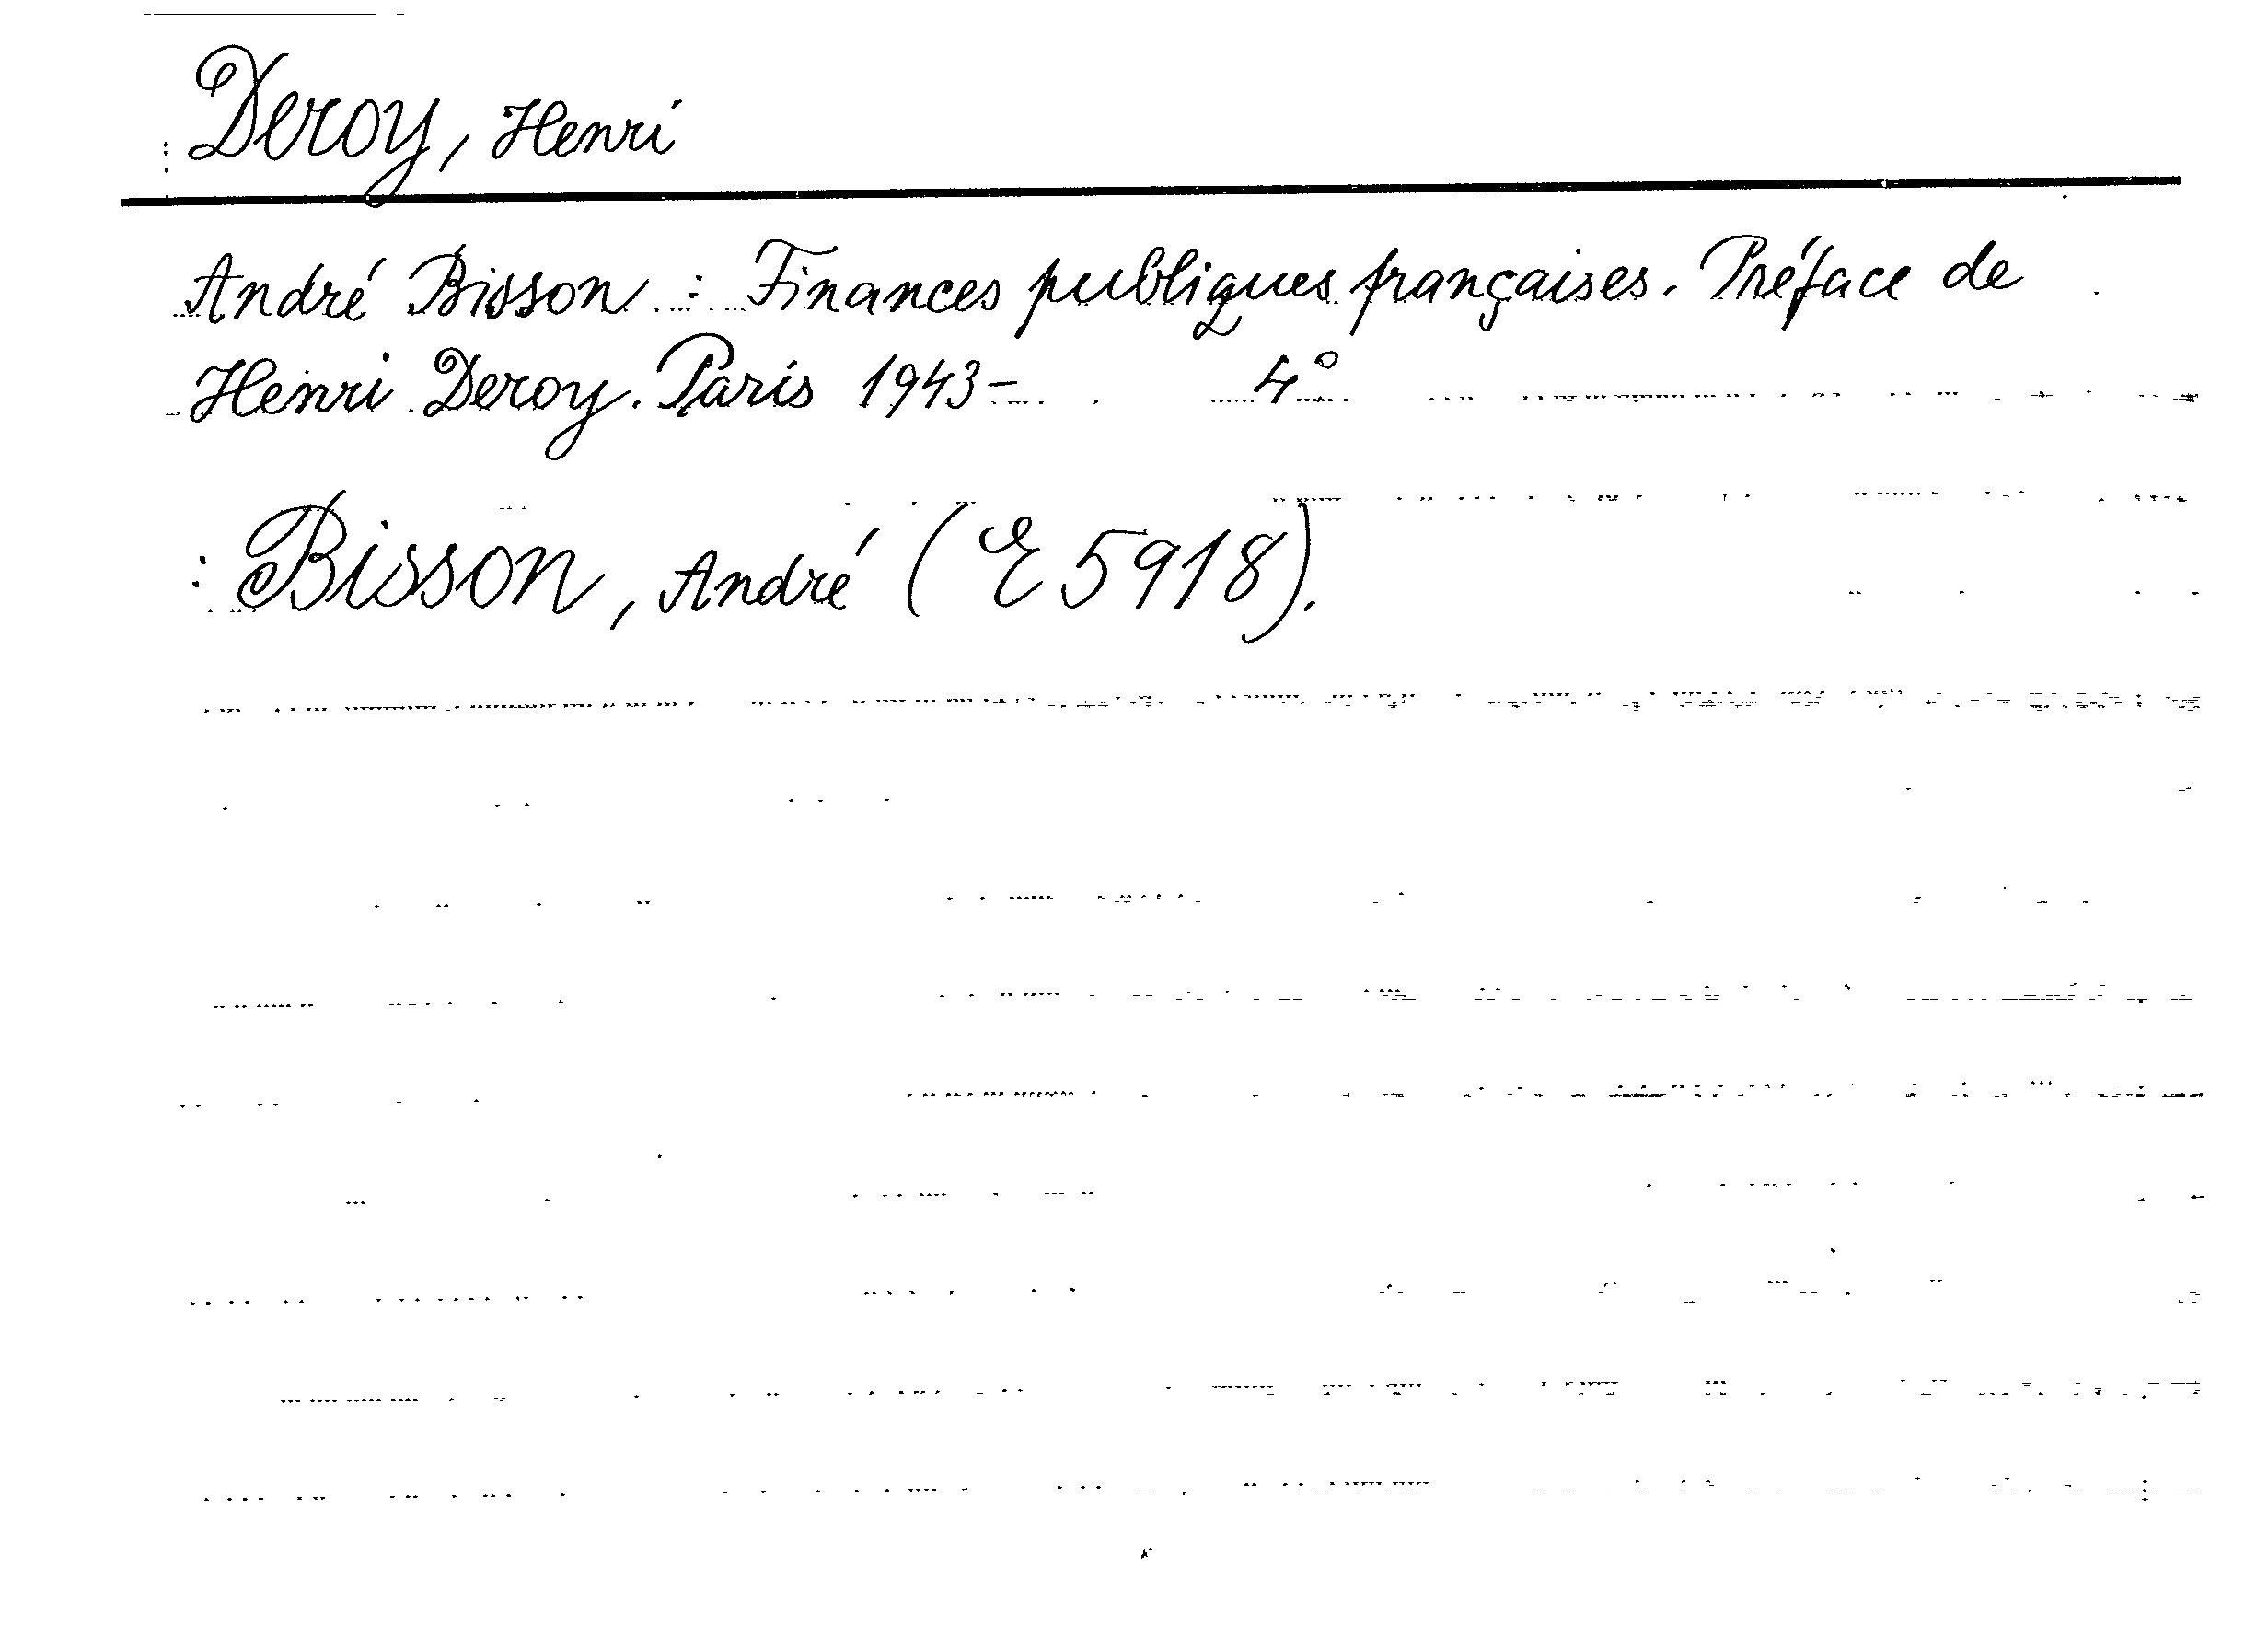 Deroy, Henri
André Bisson : Finances publiques françaises. Préface de
Henri Deroy. Paris 1943– 4°
: Bisson, André (E 5918).